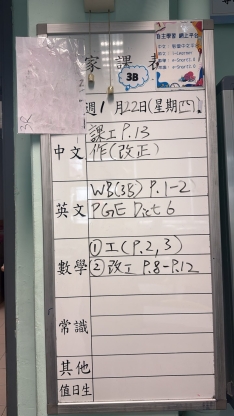 自主學習 網上平台
家課表
3B
週1月22日(星期四)
課工 P.13
中文 作(改正)
WB(3B) P.1-2
英文 PGE Dict 6
① 工(P.2,3)
數學 ② 改工 P.8-P.12
常識
其他
值日生